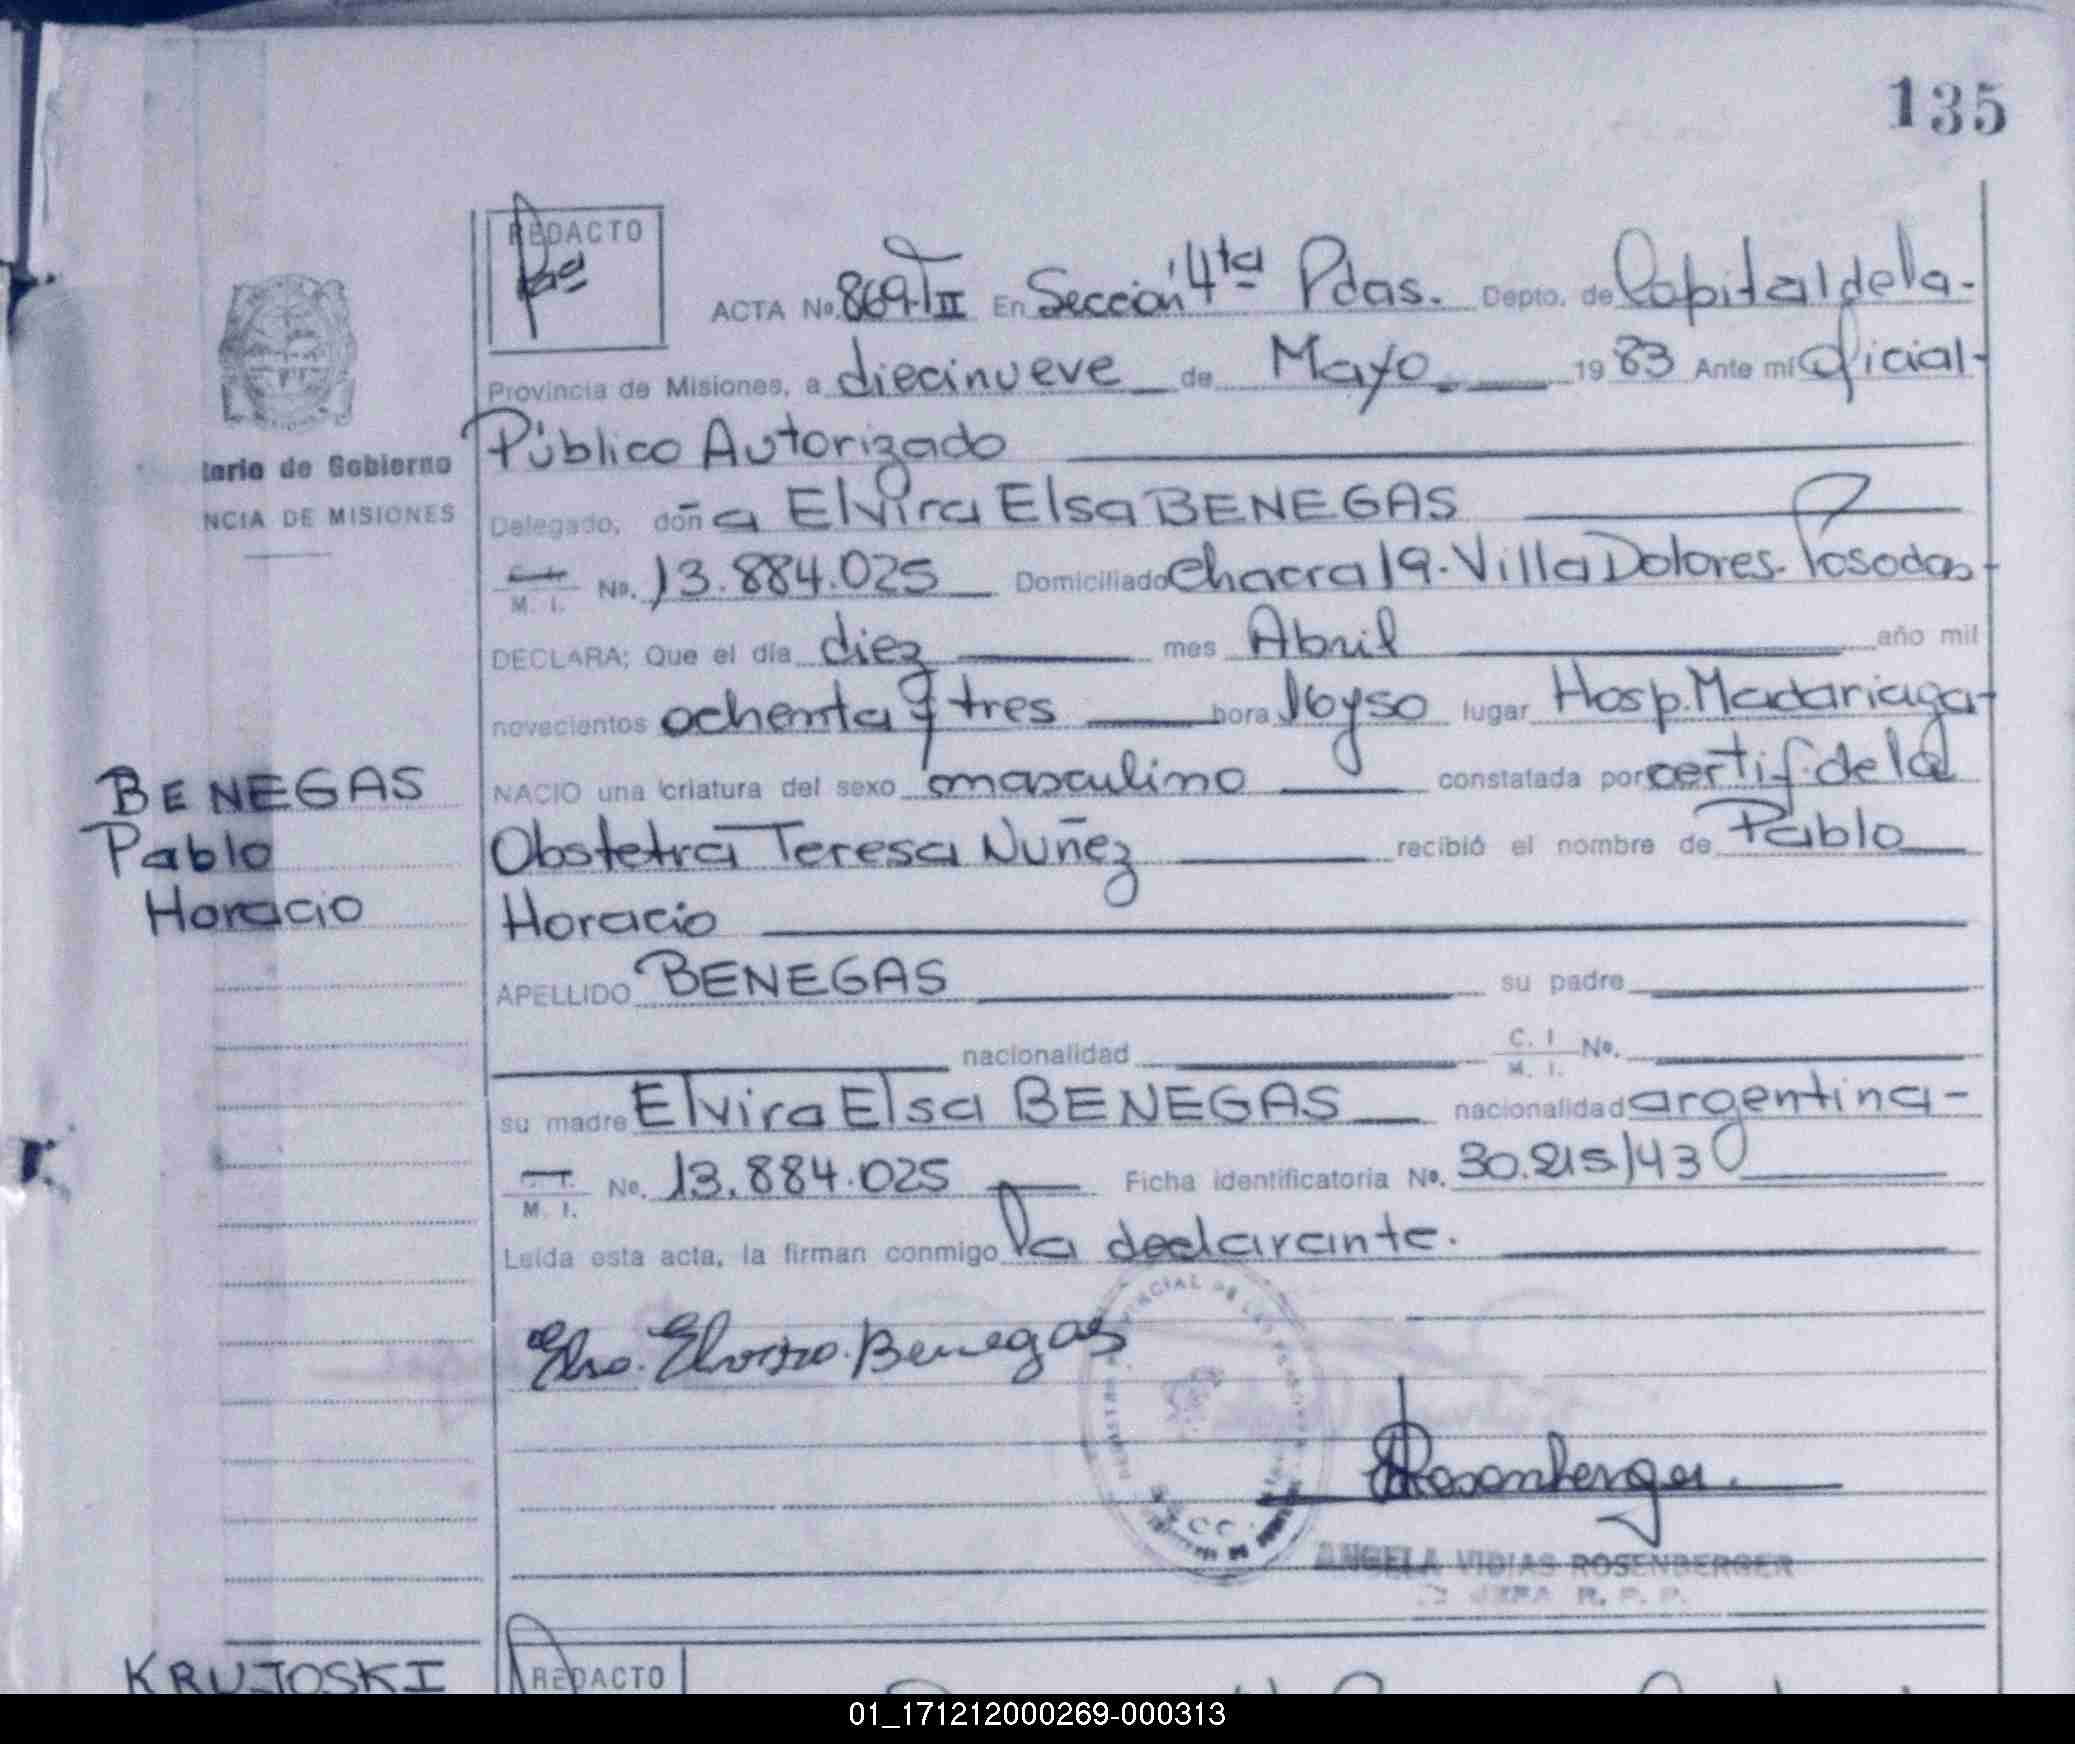 135
REDACTO
ACTA No. 869.TII En Sección 4ta Pdas. Depto. de Capital de la-
Provincia de Misiones, a diecinueve de Mayo. 1983 Ante mi Oficial-
Público Autorizado
tario de Gobierno
NCIA DE MISIONES
Delegado, doña Elvira Elsa BENEGAS
M. I. No. 13.884.025 Domiciliado Chacra 19. Villa Dolores. Posadas
DECLARA; Que el día diez mes Abril año mil
novecientos ochenta y tres hora 16y50 lugar Hosp. Madariaga-
NACIO una criatura del sexo masculino constatada por certif. de la
Obstetra Teresa Nuñez recibió el nombre de Pablo
Horacio
BENEGAS
Pablo
Horacio
APELLIDO BENEGAS su padre
nacionalidad C. I M. I. No.
su madre Elvira Elsa BENEGAS nacionalidad argentina-
M. I. No. 13.884.025 Ficha identificatoria No. 30.215/43
Leída esta acta, la firman conmigo la declarante.
Elsa. Elvira. Benegas
Rosenberger.
ANGELA VIDIAS ROSENBERGER
JEFA R. P. P.
KRUJOSKI
REDACTO
01_171212000269-000313